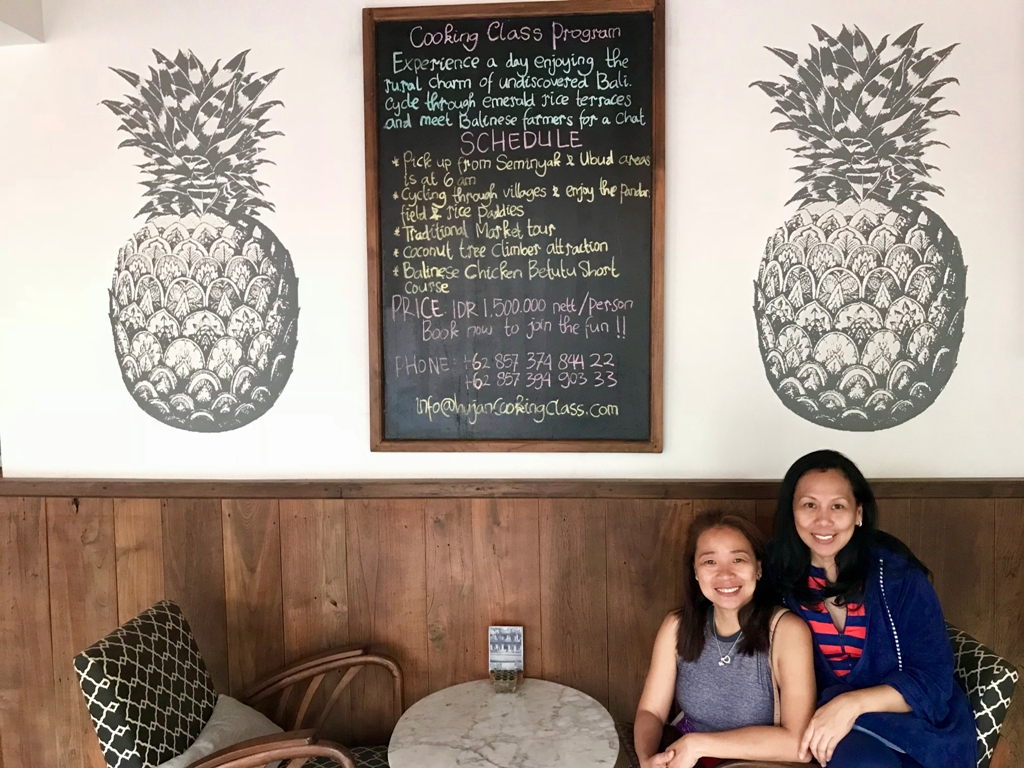 Cooking Class Program
Experience a day enjoying the
rural charm of undiscovered Bali.
Cycle through emerald rice terraces
and meet Balinese farmers for a chat
SCHEDULE
* Pick up from Seminyak & Ubud areas
is at 6 am
* Cycling through villages & enjoy the pandan
field & rice paddies
* Traditional Market tour
* coconut tree climber attraction
* Balinese Chicken Betutu Short
Course
PRICE: IDR 1.500.000 nett/person
Book now to join the fun !!
PHONE: +62 857 374 844 22
+62 857 394 903 33
info@hujancookingclass.com